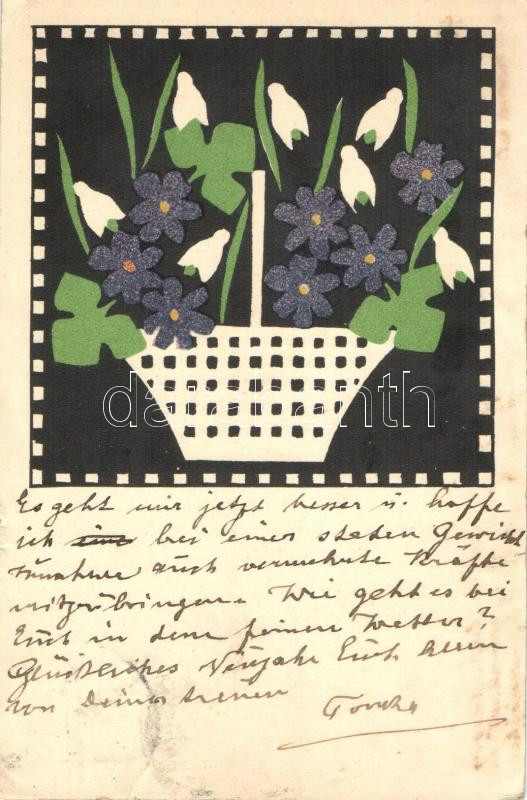 darabanth
Es geht mir jetzt besser u. hoffe
ich bei einer steten Gewichts
zunahme auch vermehrte Kräfte
mitzubringen. Wie geht es bei
Euch in dem feinen Wetter?
Glückliches Neujahr Euch allen
von Deiner treuen